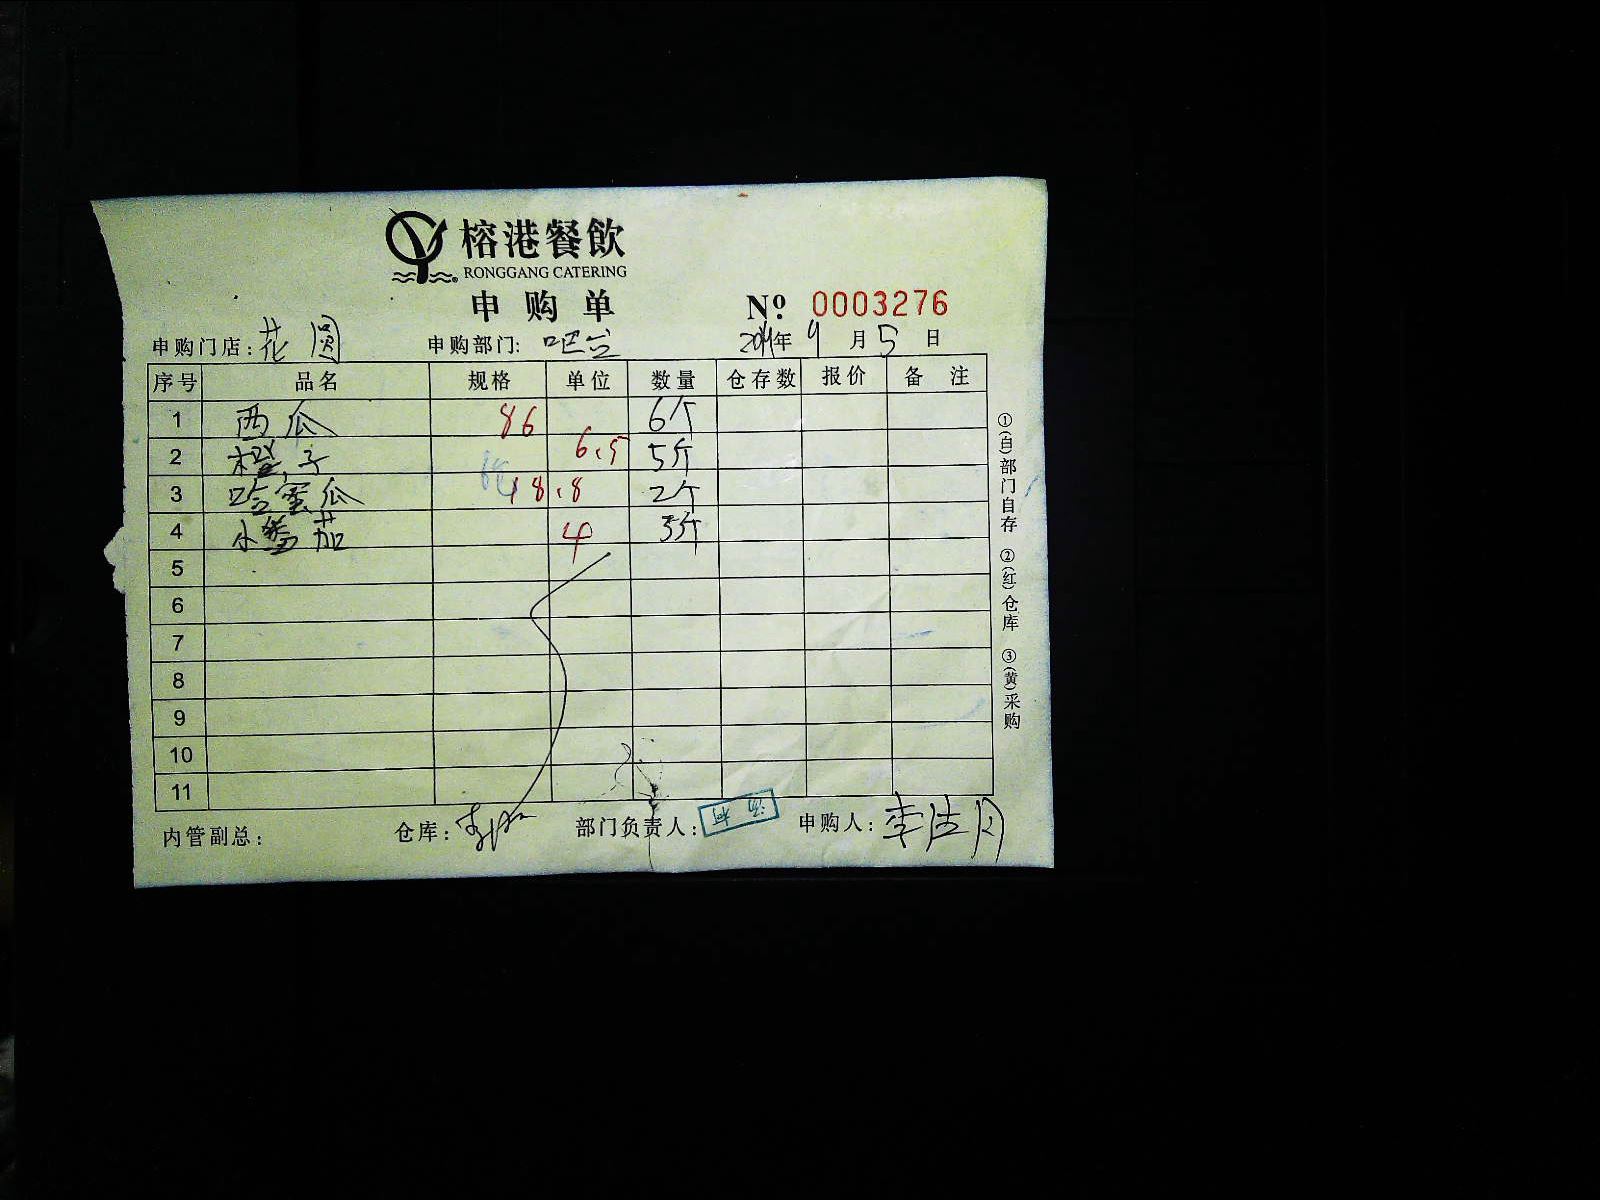 榕港餐飲
RONGGANG CATERING
申购单
№ 0003276
申购门店:花圆 申购部门:吧台 年9月5日
序号 品名 规格 单位 数量 仓存数 报价 备注
1 西瓜 86 6个
2 橙子 6.5 5斤
3 哈蜜瓜 18.8 2个
4 小番茄 4 3斤
5
6
7
8
9
10
11
内管副总: 仓库: 部门负责人: 申购人:李洁月
①(白)部门自存 ②(红)仓库 ③(黄)采购